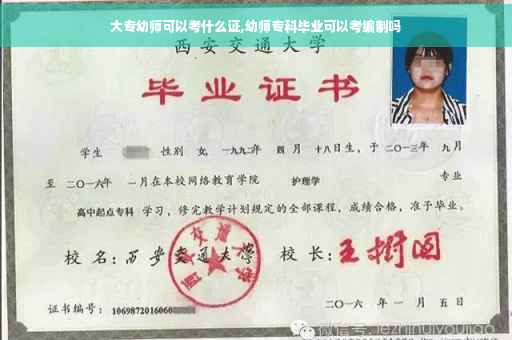 大专幼师可以考什么证,幼师专科毕业可以考编制吗
西安交通大学
毕业证书
学生 性别 女,一九九二年 四月 十八日生,于二〇一三年 九月
至 二〇一六年 一月在本校网络教育学院 护理学 专业
高中起点专科 学习,修完教学计划规定的全部课程,成绩合格,准予毕业。
校名:西安交通大学 校长:王树国
西安交通大学
证书编号:1069872016060 二〇一六年 一月 五日
微信号:jezhihuiyoujiao